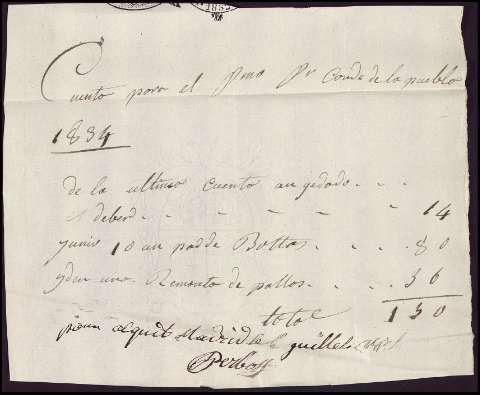 Cuento para el Ymo Sr Conde de la puebla
1834
de la ultimo cuento an jedado . . .
deberd . - - - - - . 14
junio 10 un par de Bottas . . . . 80
yden uno Remonto de pallos . . . . 36
total 130
pour aquit Madrid